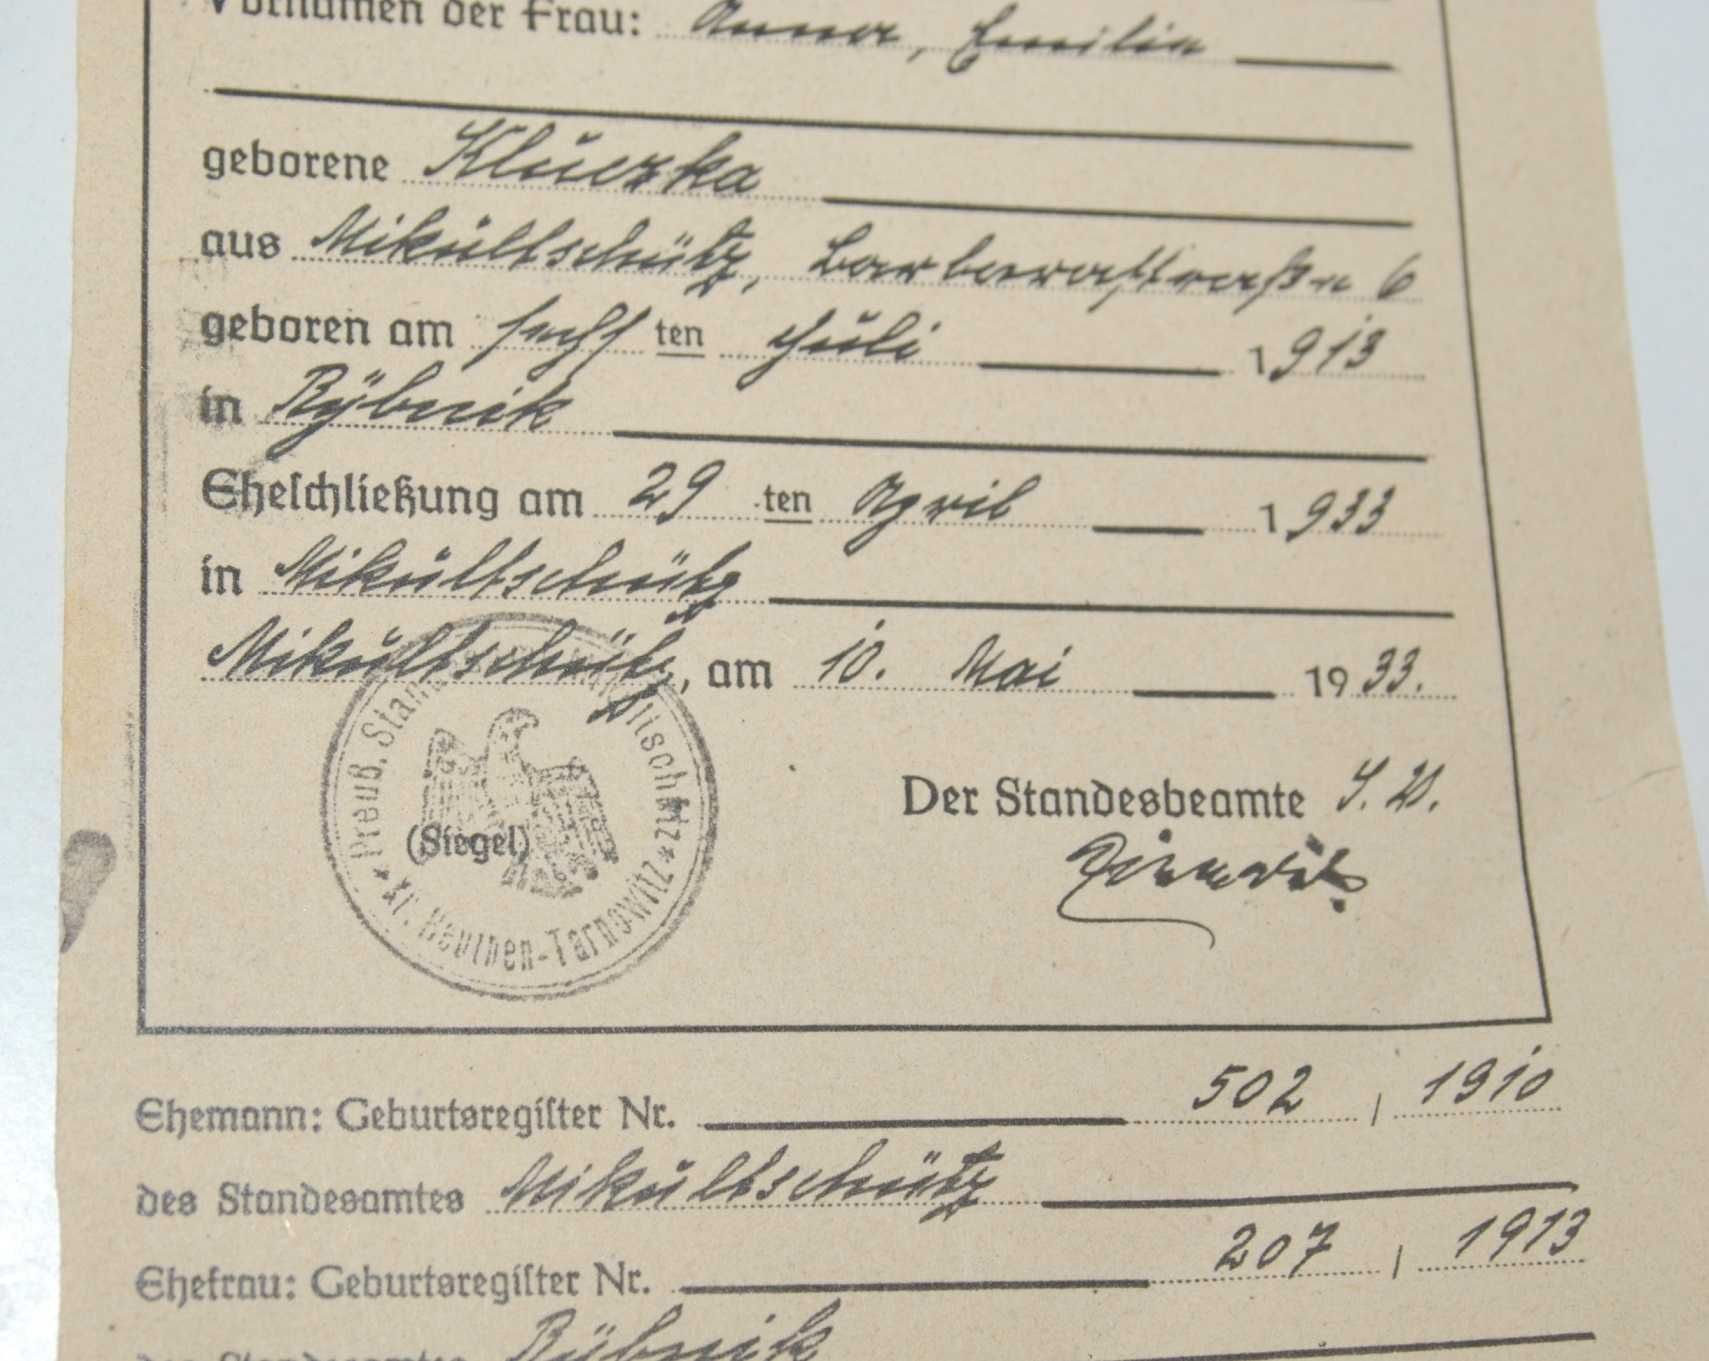 Vornamen der Frau: Anna, Emilie
geborene Kluczka
aus Mikultschütz, Barbarastraße 6
geboren am sechs ten Juli 1913
in Rybnik
Eheschließung am 29 ten April 1933
in Mikultschütz
Mikultschütz, am 10. Mai 1933.
Preuß. Stan itschütz
(Siegel)
Kr. Beuthen-Tarnowitz
Der Standesbeamte I. V.
Ehemann: Geburtsregister Nr. 502 / 1910
des Standesamtes Mikultschütz
Ehefrau: Geburtsregister Nr. 207 / 1913
des Standesamtes Rybnik